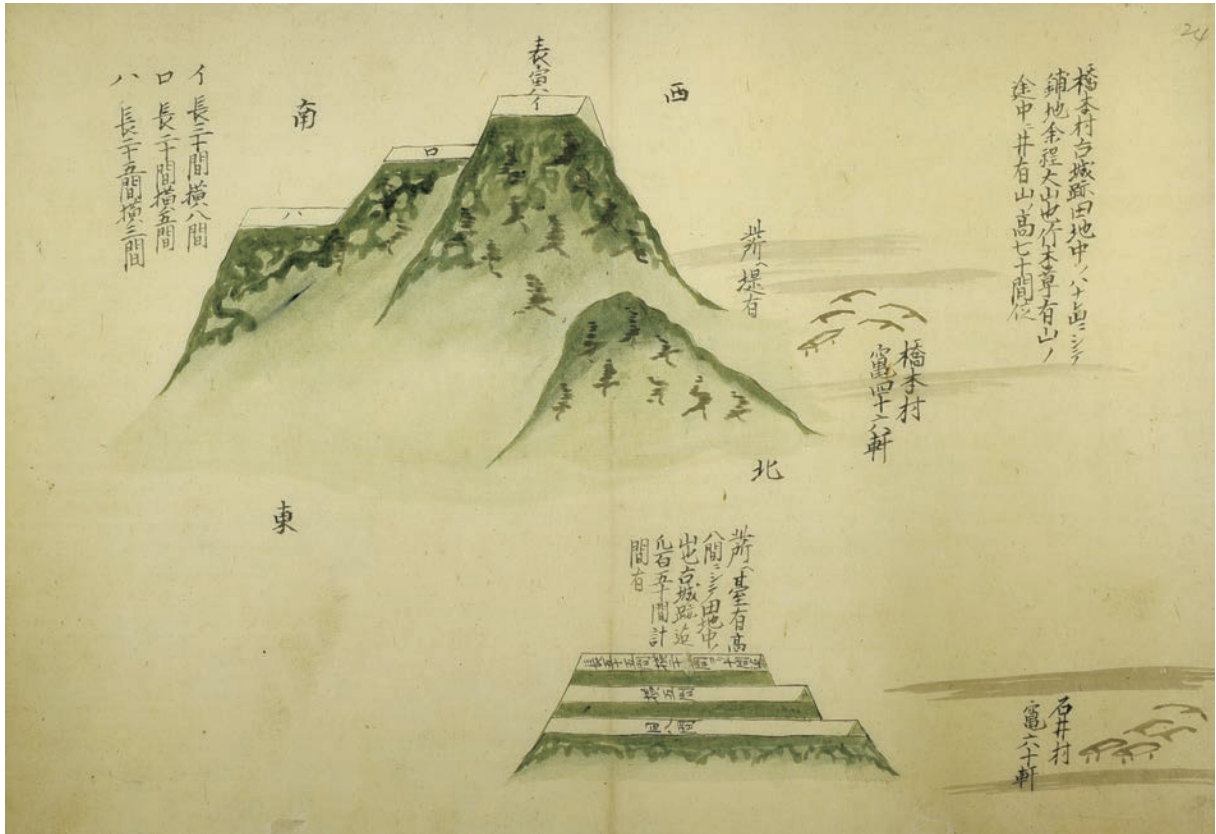 24
橋本村古城跡田地中ノハナ山ニシテ
鋪地余程大山也竹木草有山ノ
途中ニ井有山ノ高七十間位
西
表寅ハ
イ
南
ロ
ハ
イ 長三十間横八間
ロ 長二十間横五間
ハ 長二十五間横三間
此所ヘ堤有
橋本村
竈四十六軒
北
東
此所ヘ臺有高
八間ニシテ田地中ノ
山也古城跡迄
凡百五十間計
間有
横五間
石井村
竈六十軒